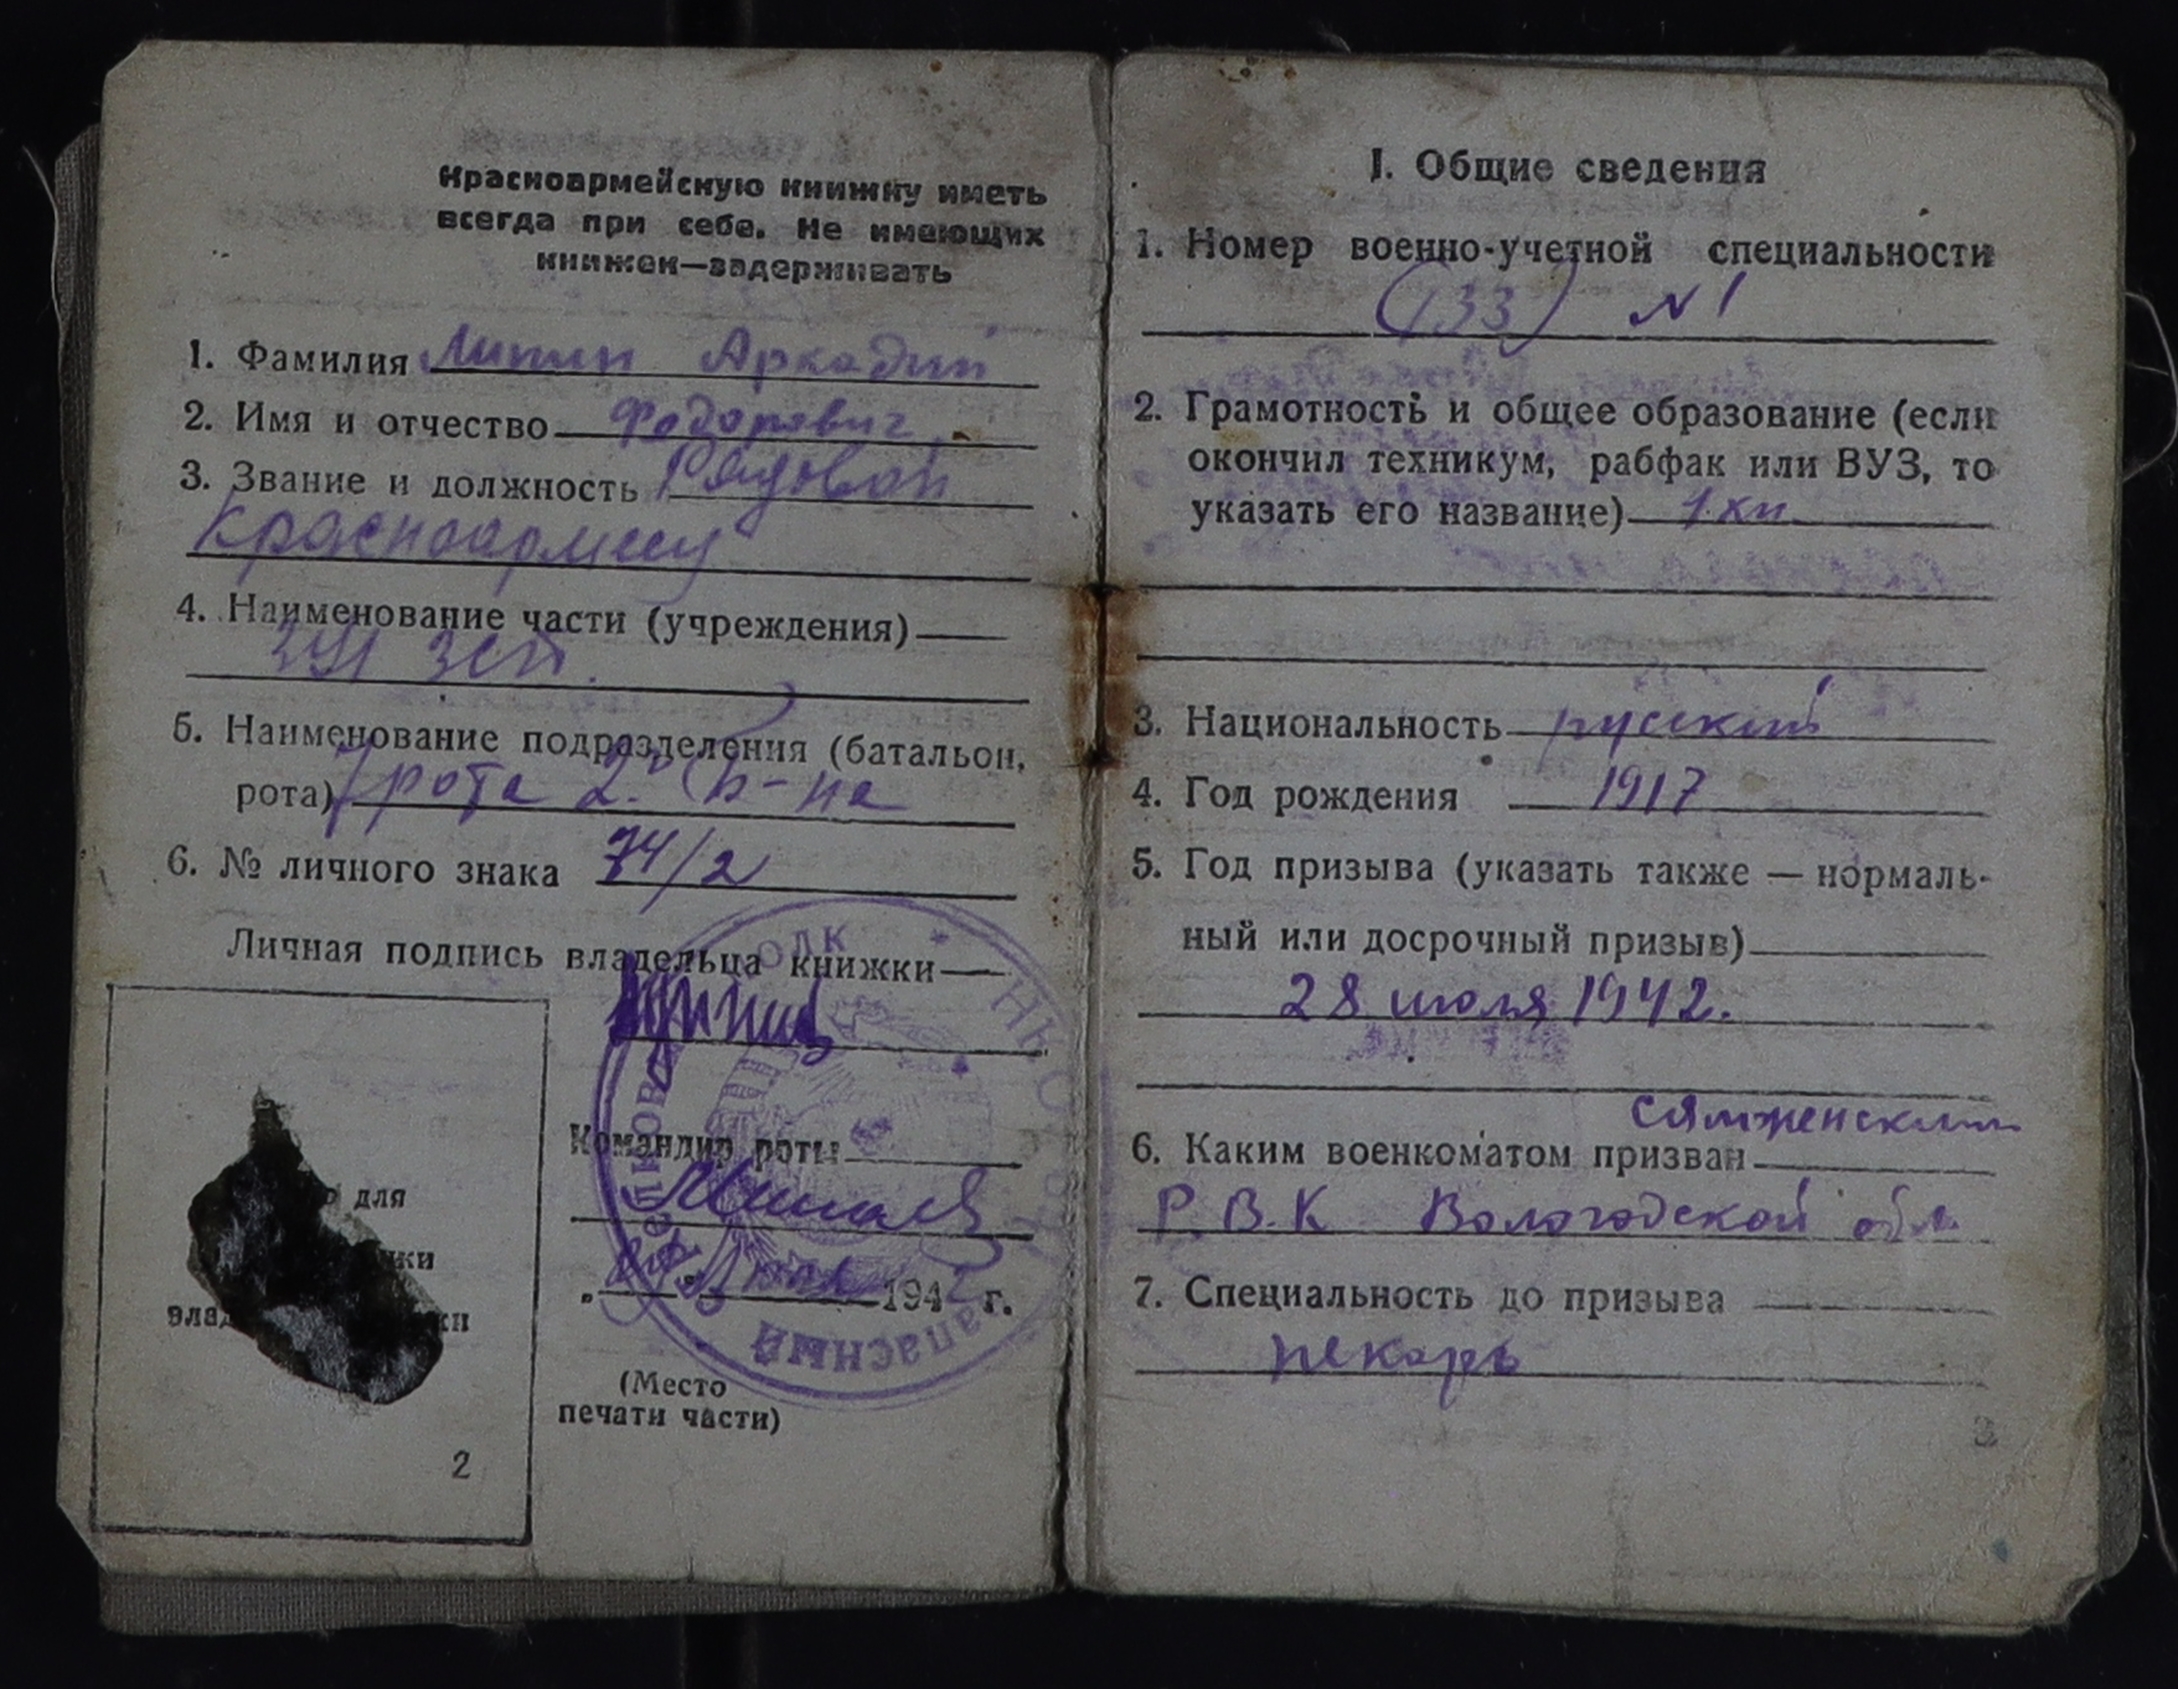 Красноармейскую книжку иметь
всегда при себе. Не имеющих
книжек—задерживать
1. Фамилия Липин Аркадий
2. Имя и отчество Федорович
3. Звание и должность Рядовой
красноармеец
4. Наименование части (учреждения)
зсп.
5. Наименование подразделения (батальон,
рота) 7 рота 2. б-на
6. № личного знака 74/2
Личная подпись владельца книжки
Командир роты
194 г.
(Место
печати части)
для
ки
влад ки
2
ЗАПАСНЫЙ СТРЕЛКОВЫЙ ПОЛК * НКО
I. Общие сведения
1. Номер военно-учетной специальности
(133) № 1
2. Грамотность и общее образование (если
окончил техникум, рабфак или ВУЗ, то
указать его название)
3. Национальность русский
4. Год рождения 1917
5. Год призыва (указать также — нормаль-
ный или досрочный призыв)
28 июля 1942.
Сямженским
6. Каким военкоматом призван
Р.В.К Вологодской обл.
7. Специальность до призыва
пекарь
3